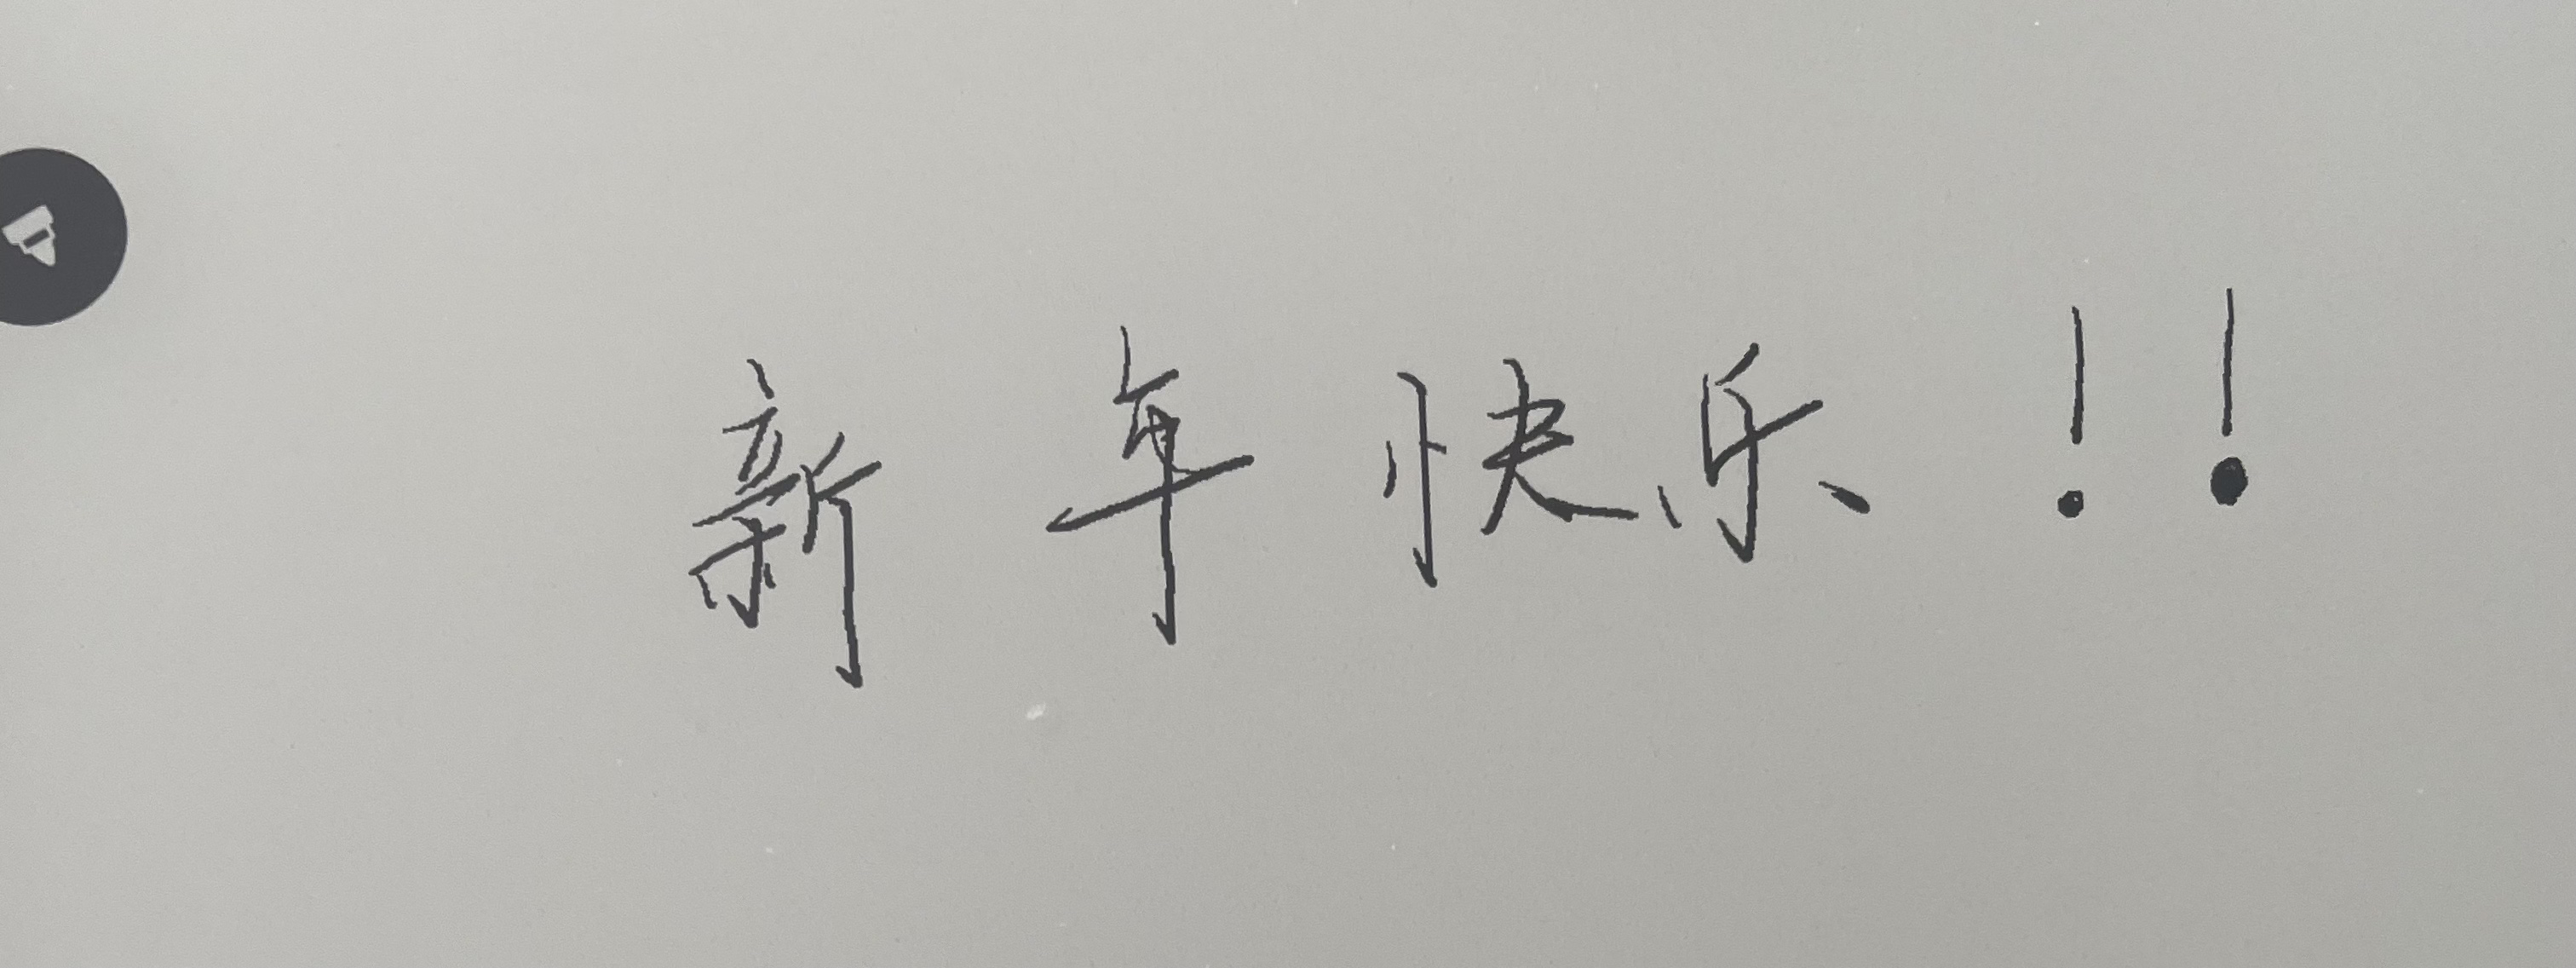 新年快乐!!